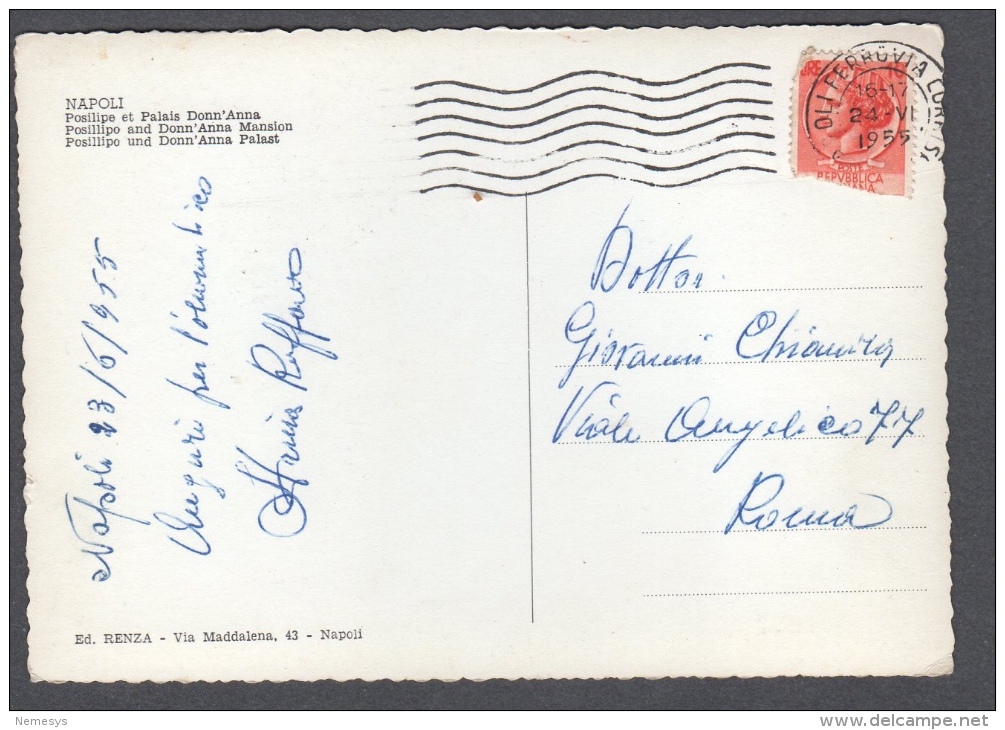 NAPOLI
Posilipe et Palais Donn'Anna
Posillipo and Donn'Anna Mansion
Posillipo und Donn'Anna Palast
Napoli 23/6/955
Auguri per l'onomastico
Ed. RENZA - Via Maddalena, 43 - Napoli
OLI FERROVIA CORRISP
16-17
24-VI
1955
POSTE
REPVBBLICA
Dottor.
Giovanni
Viale Angelico 77
Roma
Nemesys
www.delcampe.net